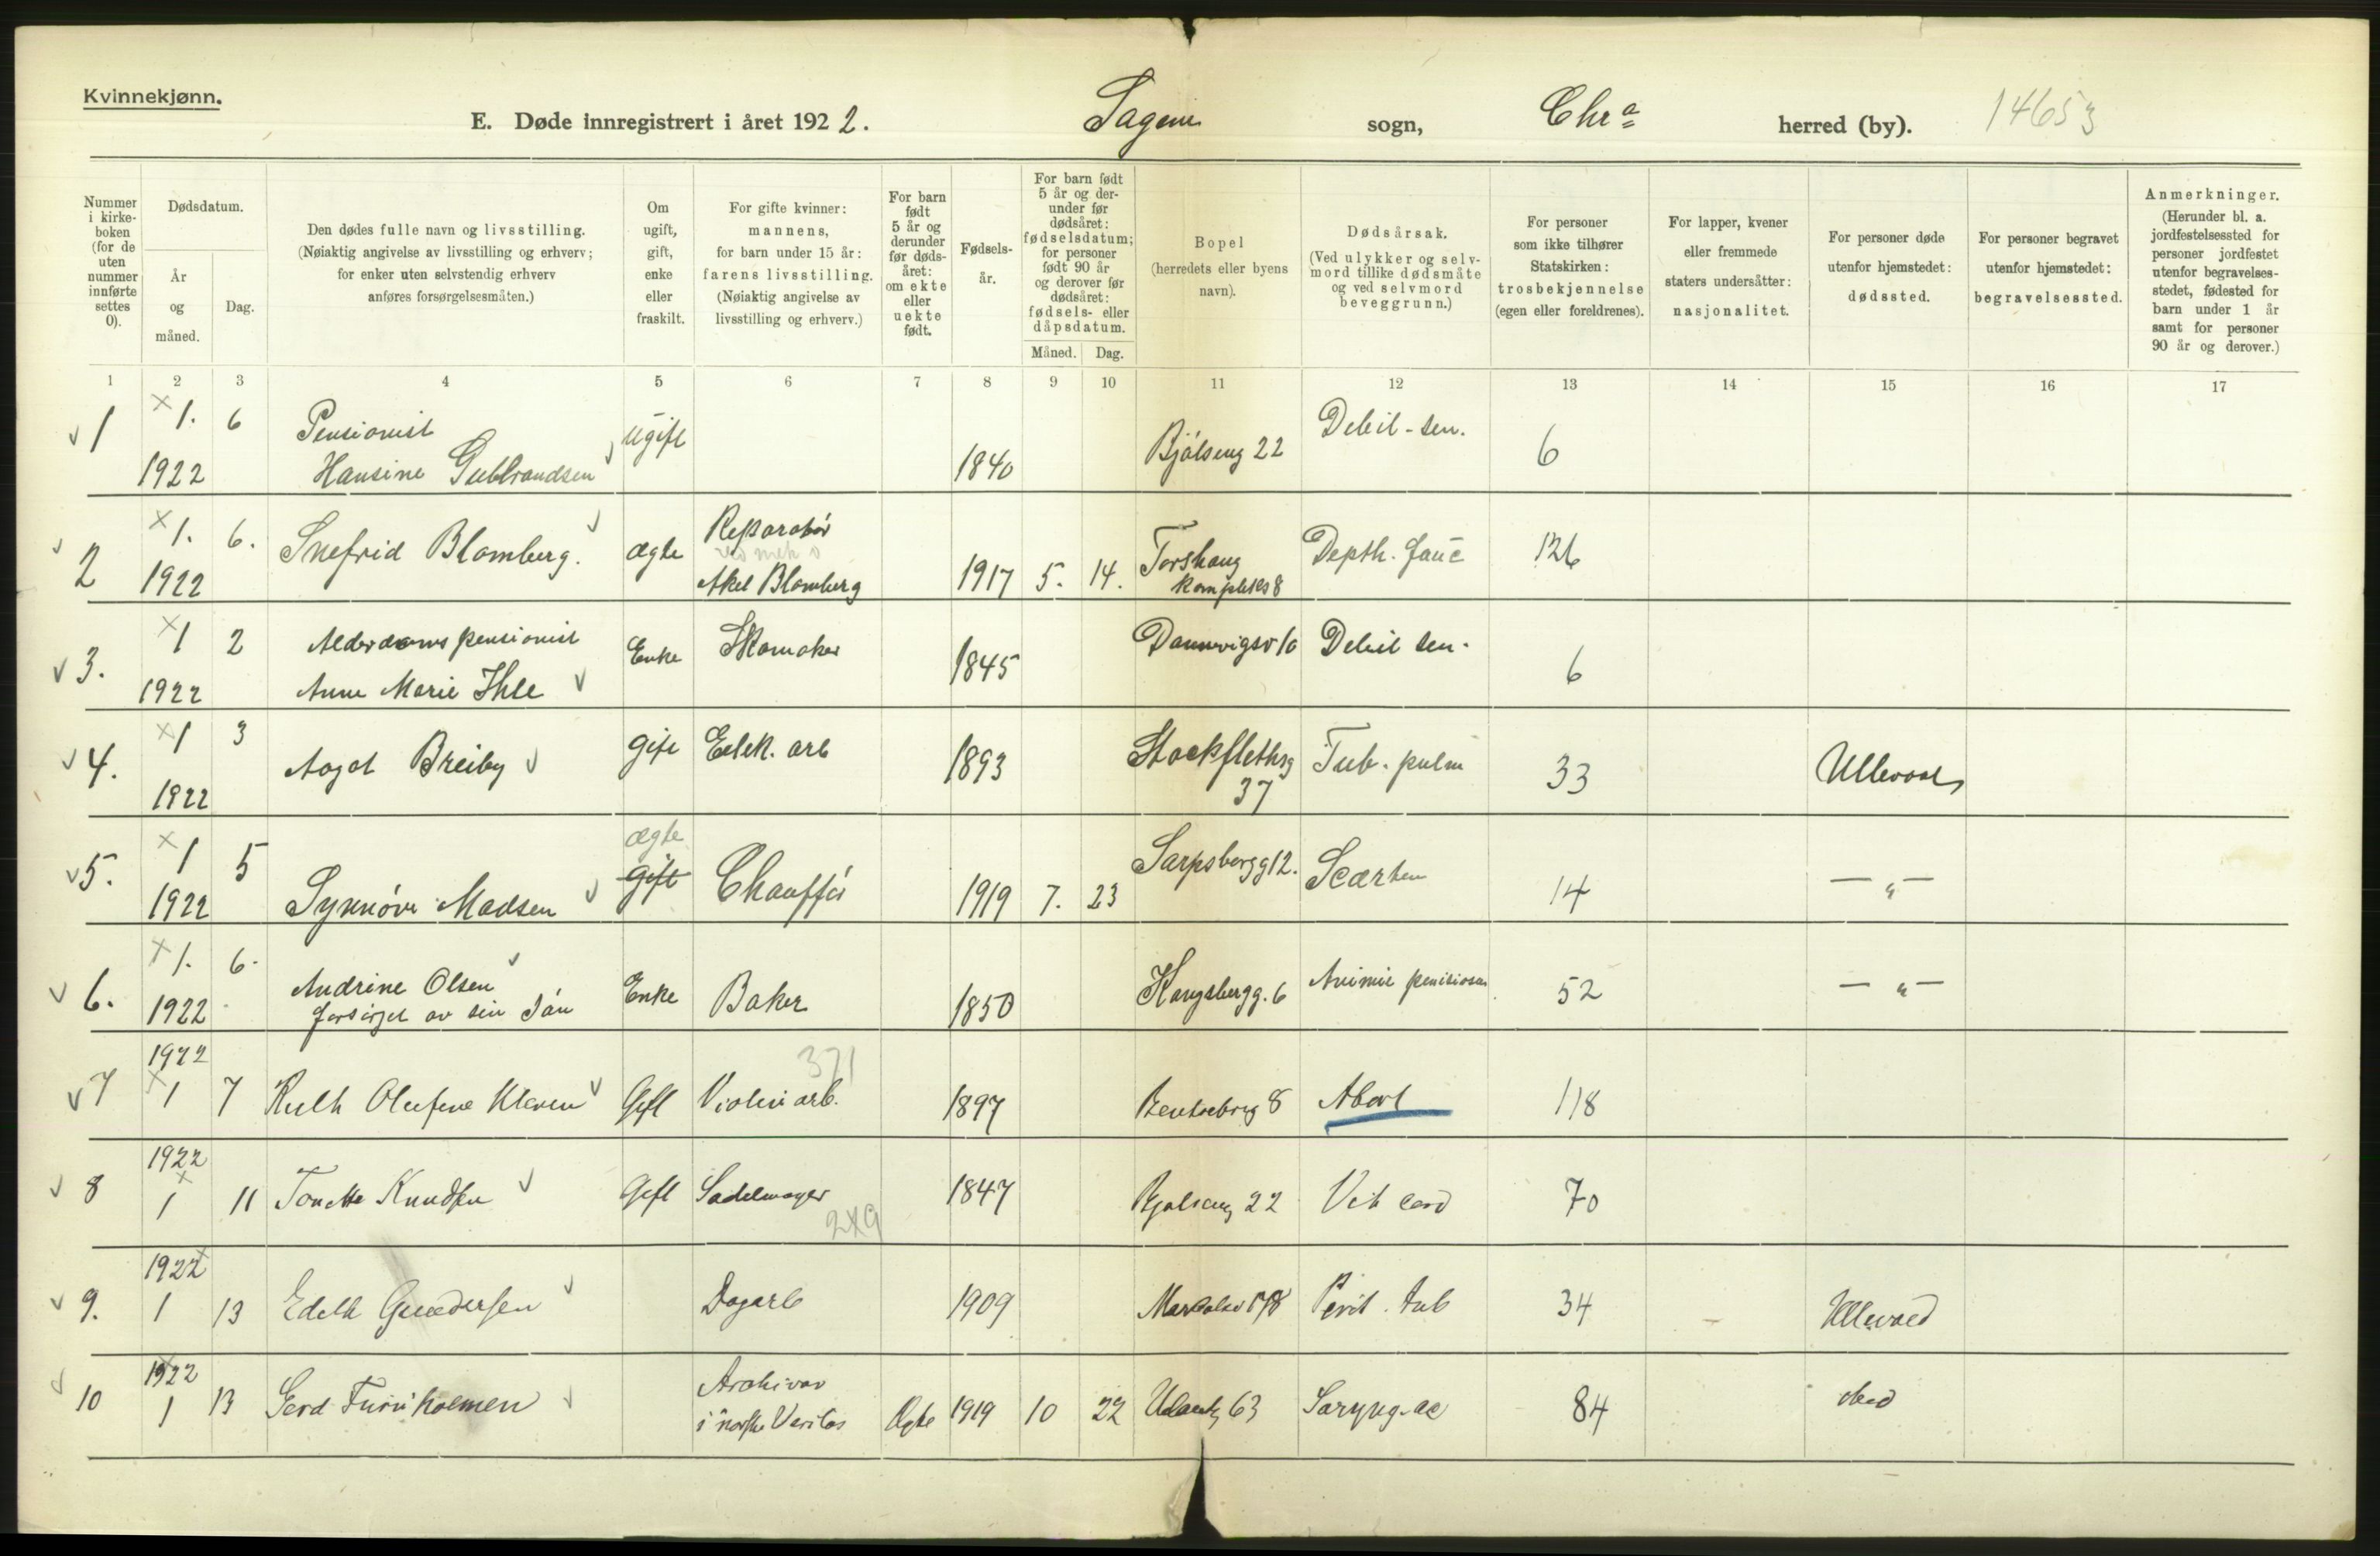 Kvinnekjønn.
E. Døde innregistrert i året 1922. Sagene sogn, Chr.a herred (by). 14653
Nummer i kirkeboken (for de uten nummer innførte settes 0).
Dødsdatum.
År og måned.
Dag.
Den dødes fulle navn og livsstilling.
(Nøiaktig angivelse av livsstilling og erhverv;
for enker uten selvstendig erhverv
anføres forsørgelsesmåten.)
Om ugift, gift, enke eller fraskilt.
For gifte kvinner: mannens, for barn under 15 år: farens livsstilling. (Nøiaktig angivelse av livsstilling og erhverv.)
For barn født 5 år og derunder før dødsåret: om ekte eller uekte født.
Fødselsår.
For barn født 5 år og derunder før dødsåret: fødselsdatum; for personer født 90 år og derover før dødsåret: fødsels- eller dåpsdatum.
Måned. Dag.
Bopel (herredets eller byens navn).
Dødsårsak. (Ved ulykker og selvmord tillike dødsmåte og ved selvmord beveggrunn.)
For personer som ikke tilhører Statskirken: trosbekjennelse (egen eller foreldrenes).
For lapper, kvener eller fremmede staters undersåtter: nasjonalitet.
For personer døde utenfor hjemstedet: dødssted.
For personer begravet utenfor hjemstedet: begravelsessted.
Anmerkninger. (Herunder bl. a. jordfestelsessted for personer jordfestet utenfor begravelsesstedet, fødested for barn under 1 år samt for personer 90 år og derover.)
1 2 3 4 5 6 7 8 9 10 11 12 13 14 15 16 17
1 1. 6 Pensionist ugift Debil-sen.
1922 Hansine Gulbrandsen 1840 Bjølseng 22 6
2 1. 6. Snefrid Blomberg. ægte Reparatør Torshaug Depth. fauc 126
1922 Aksel Blomberg 1917 5. 14. kompleks 8
3. 1 2 Alderdomspensionist Enke Skomaker Dannevigsv 10 Debil sen.
1922 Anne Marie Ihle 1845 6
4. 1 3 Aagot Breiby gift Eelek. arb 1893 Stockflethsg Tub. pulm 33 Ullevaal
1922 37
ægte
5. 1 5 gift Chauffør Sarpsborgg 12. Scarten
1922 Synnøve Madsen 1919 7. 23 14 — " —
6. 1. 6. Andrine Olsen Enke Baker Kongsbergg. 6 52 — " —
1922 forsørget av sin søn 1850
1922 371
7 1 7 Ruth Olufine Kleven Gift Violinarb. 1897 Bentsebrog 8 Abort 118
1922
8 1 11 Tonette Knudsen Gift Sadelmager 1847 Bjølseng 22 Vit cord 70
249
1922
9. 1 13 Edith Gundersen Dagarb 1909 Perit. tub 34 Ullevaal
1922 Arkivar
10 1 13 Gerd Furuholmen i norske Veritas Ægte 1919 10 22 63 Laryng. ac 84 do